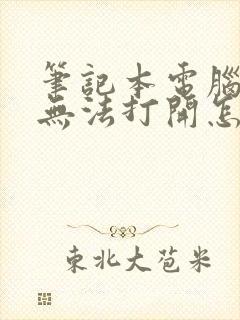 筆記本電腦
無法打開怎
東北大苞米